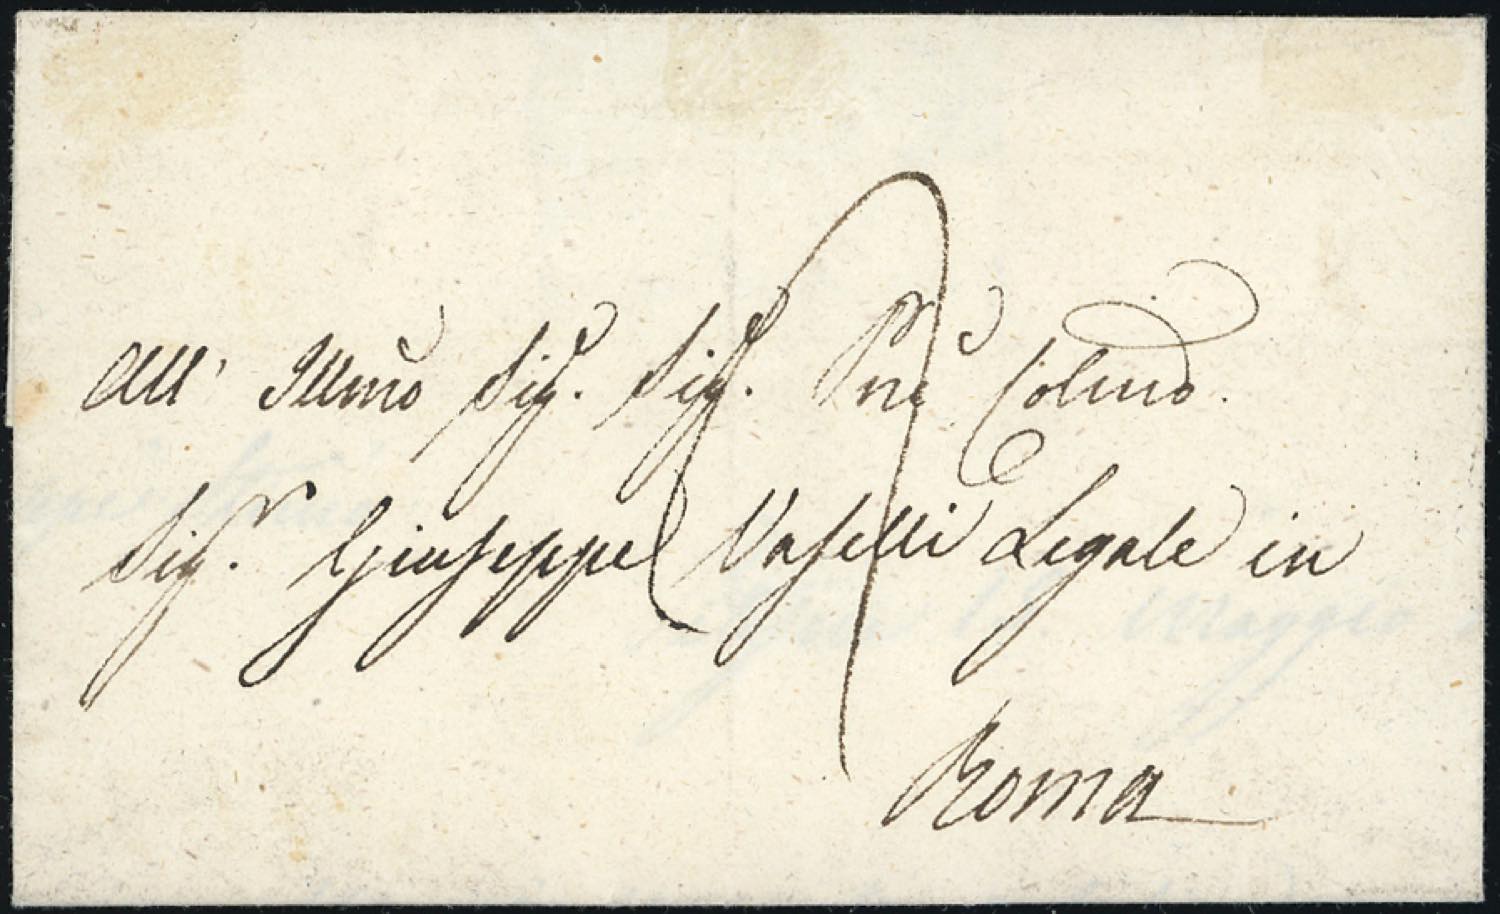 All' Illmo Sig. Sig. Pne Colmo.
Sig.r Giuseppe Vaselli Legale in
Roma